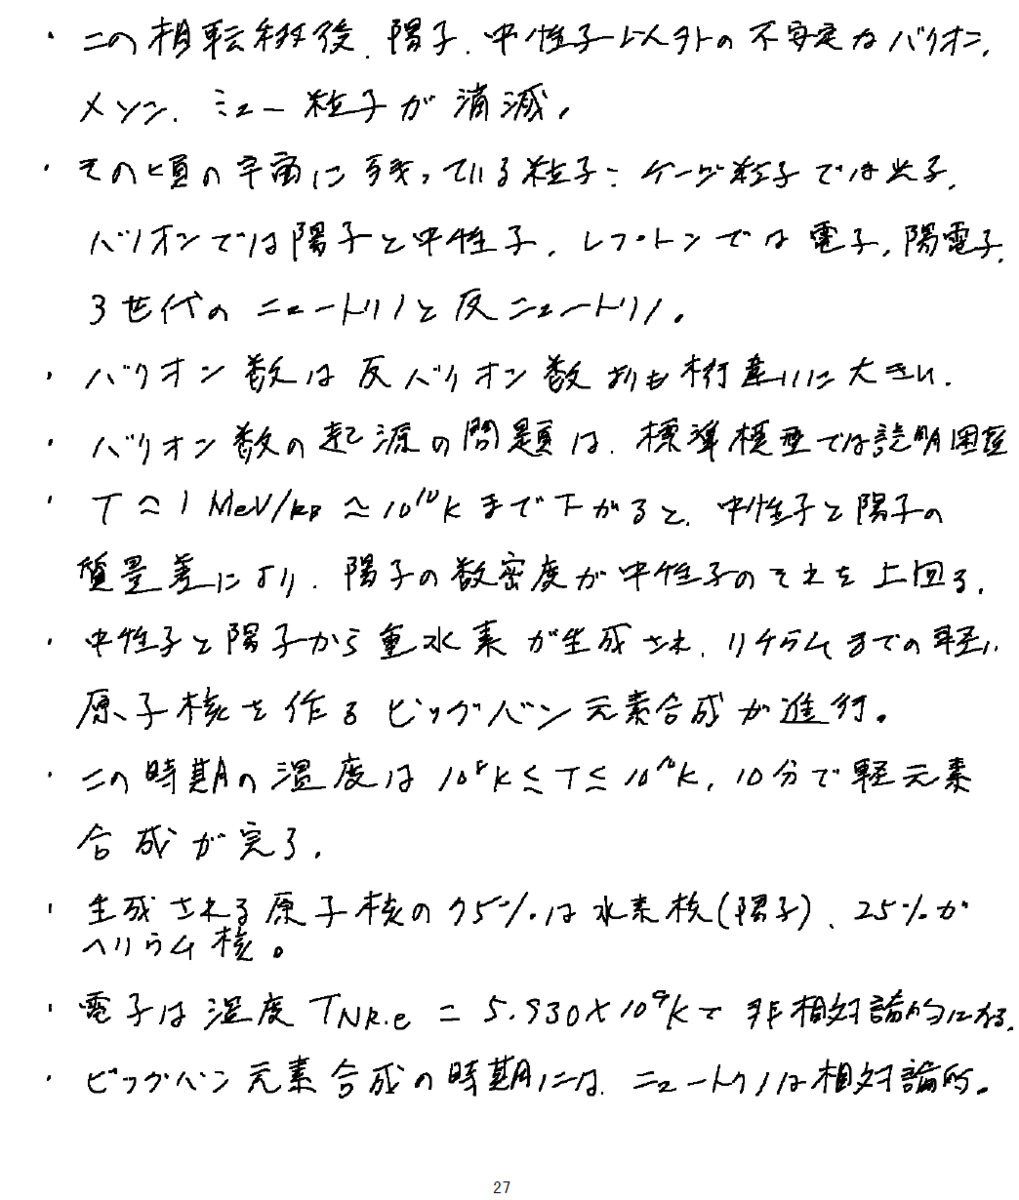 ・この相転移後、陽子、中性子以外の不安定なバリオン、
メソン、ミュー粒子が消滅。
・その頃の宇宙に残っている粒子:ゲージ粒子では光子、
バリオンでは陽子と中性子、レプトンでは電子、陽電子、
3世代のニュートリノと反ニュートリノ。
・バリオン数は反バリオン数よりも桁違いに大きい。
・バリオン数の起源の問題は、標準模型では説明困難
・T≈1 MeV/kB≈10^10Kまで下がると、中性子と陽子の
質量差により、陽子の数密度が中性子のそれを上回る。
・中性子と陽子から重水素が生成され、リチウムまでの軽い
原子核を作るビッグバン元素合成が進行。
・この時期の温度は10^8K≤T≤10^10K、10分で軽元素
合成が完了。
・生成される原子核の75%は水素核(陽子)、25%が
ヘリウム核。
・電子は温度TNR,e = 5.930×10^9Kで非相対論的になる。
・ビッグバン元素合成の時期には、ニュートリノは相対論的。
27